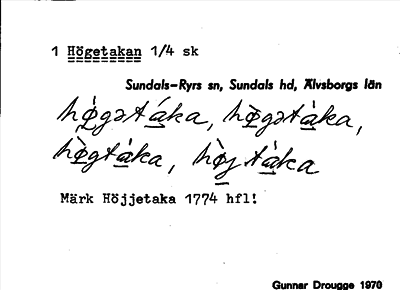 1 Högetakan 1/4 sk
Sundals-Ryrs sn, Sundals hd, Älvsborgs län
hø̀gətáka, hø̀gətàka,
hø̀gtàka, hø̀j tàka
Märk Höjjetaka 1774 hfl!
Gunnar Drougge 1970